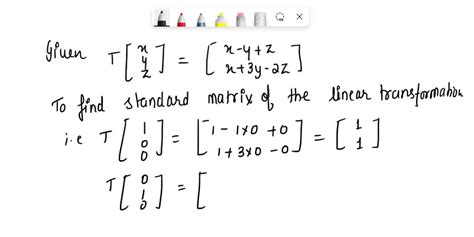 Given T [x y z] = [x-y+z x+3y-2z]
To find standard matrix of the linear transformation
i.e T [1 0 0] = [1-1x0+0 1+3x0-0] = [1 1]
T [0 1 0] = [